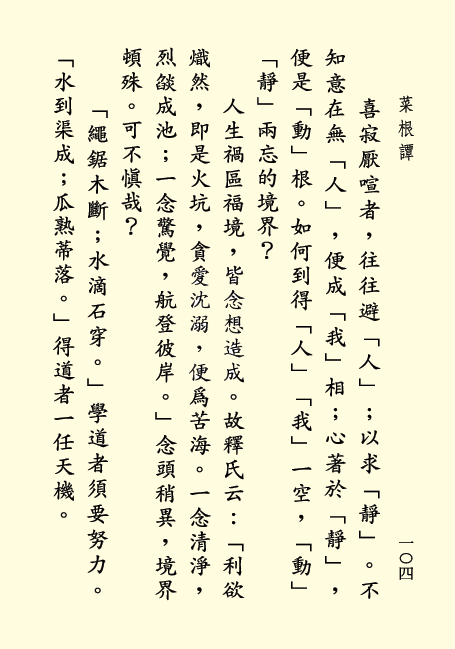 菜根譚
一〇四
喜寂厭喧者，往往避「人」；以求「靜」。不
知意在無「人」，便成「我」相；心著於「靜」，
便是「動」根。如何到得「人」「我」一空，「動」
「靜」兩忘的境界？
人生禍區福境，皆念想造成。故釋氏云：「利欲
熾然，即是火坑，貪愛沈溺，便爲苦海。一念清淨，
烈燄成池；一念驚覺，航登彼岸。」念頭稍異，境界
頓殊。可不慎哉？
「繩鋸木斷；水滴石穿。」學道者須要努力。
「水到渠成；瓜熟蒂落。」得道者一任天機。